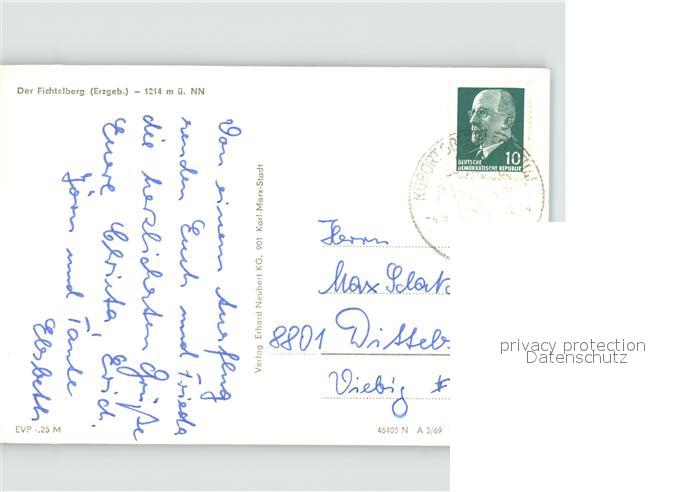 Der Fichtelberg (Erzgeb.) – 1214 m ü. NN
Von einem Ausflug
senden Euch und Frieda
die herzlichsten Grüße
Euere Christa, Erich,
Jörn und Tante
Elsbeth
Verlag Erhard Neubert KG, 901 Karl-Marx-Stadt
10
DEUTSCHE
DEMOKRATISCHE REPUBLIK
KURORT
Herrn
Max
8801
Viebig
EVP -,25 M
46405 N A 3/69
privacy protection
Datenschutz